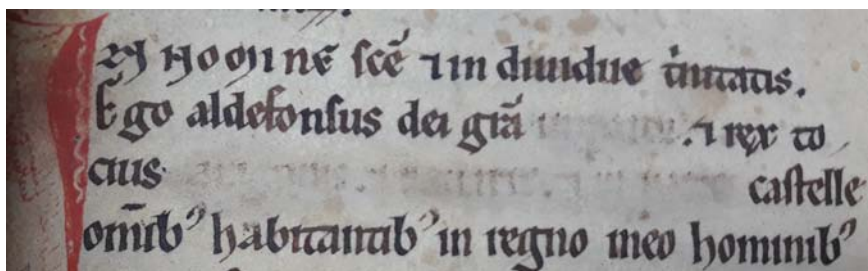 IN NOMINE scē ⁊ indiuidue t̛nitatis.
Ego aldefonsus dei grā . ⁊ rex to
cius castelle
om̄ib⁹ habitantib⁹ in regno meo hominib⁹